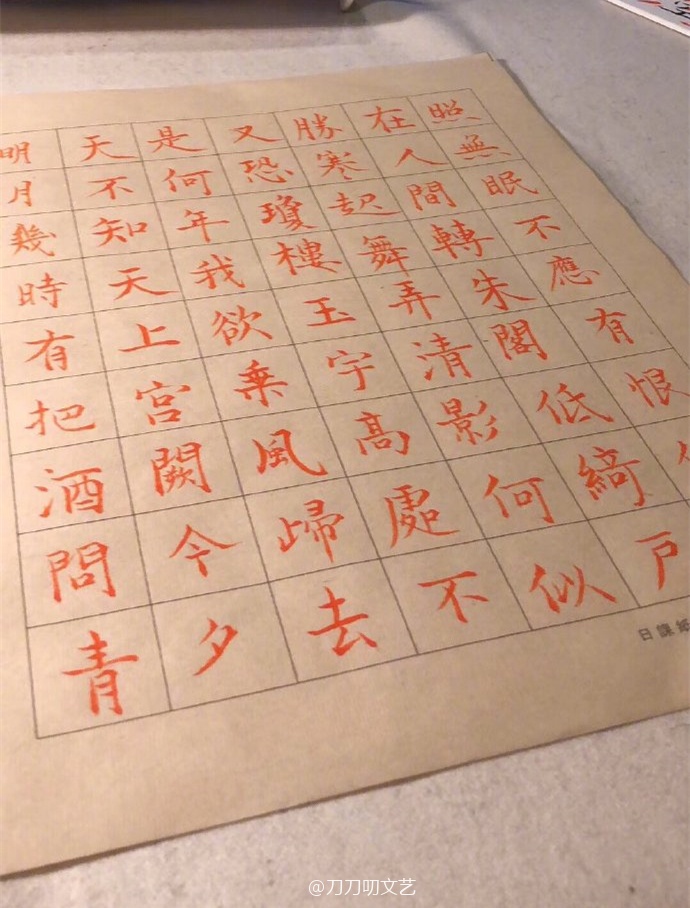 明月幾時有把酒問青
天不知天上宮闕今夕
是何年我欲乘風歸去
又恐瓊樓玉宇高處不
勝寒起舞弄清影何似
在人間轉朱閣低綺戶
照無眠不應有恨
日課紙
@刀刀叨文艺